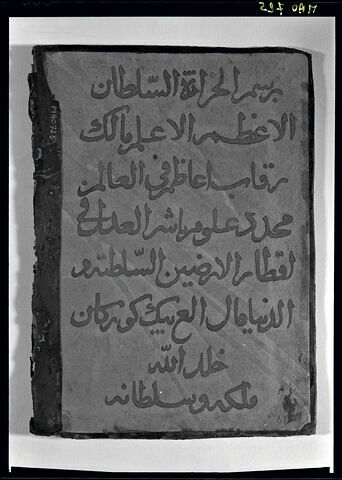 MAO 725
برسم الخزانة السّلطان
الاعظم الاعلم مالك
رقاب اعاظم في العالم
مجدد علوم ناشر العدل في
اقطار الارضين السّلطنه و
الدنيا الغ بيك كوركان
خلد الله
ملكه وسلطانه
MAO 725